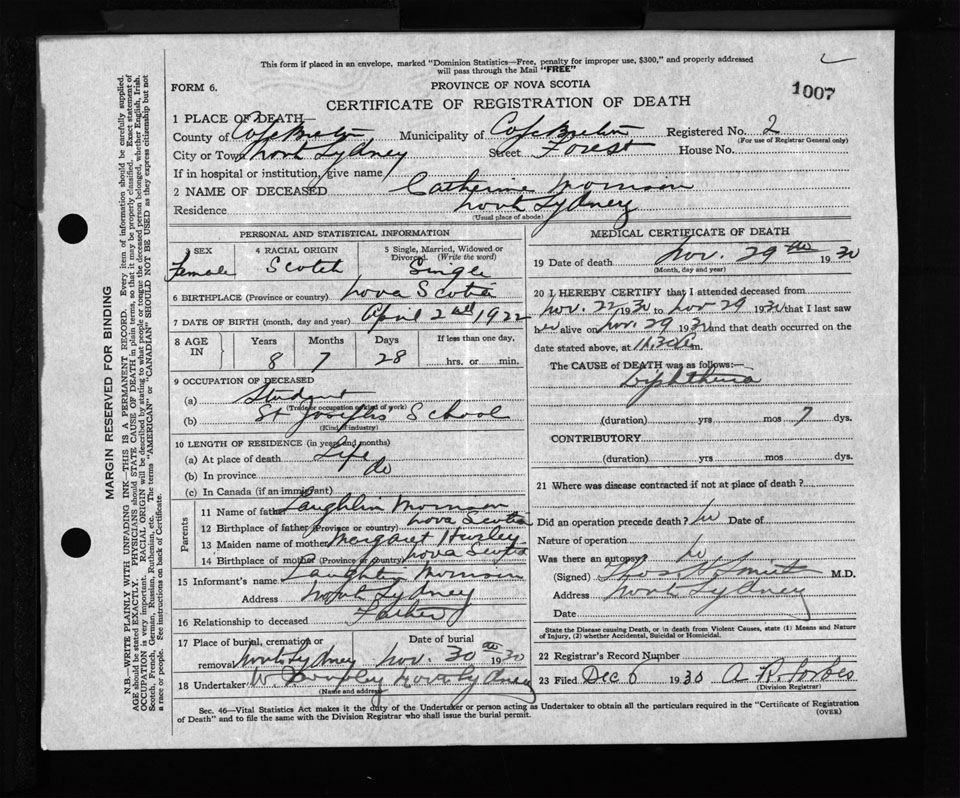 This form if placed in an envelope, marked "Dominion Statistics—Free, penalty for improper use, $300," and properly addressed
will pass through the Mail "FREE"
FORM 6.
PROVINCE OF NOVA SCOTIA
1007
CERTIFICATE OF REGISTRATION OF DEATH
1 PLACE OF DEATH—
County of Cape Breton Municipality of Cape Breton Registered No. 2
(For use of Registrar General only)
City or Town North Sydney Street Forest House No.
If in hospital or institution, give name
2 NAME OF DECEASED Catherine Morrison
Residence North Sydney
(Usual place of abode)
PERSONAL AND STATISTICAL INFORMATION
3 SEX Female
4 RACIAL ORIGIN Scotch
5 Single, Married, Widowed or Divorced (Write the word) Single
6 BIRTHPLACE (Province or country) Nova Scotia
7 DATE OF BIRTH (month, day and year) April 2nd 1922
8 AGE IN
Years Months Days If less than one day,
8 7 28 hrs. or min.
9 OCCUPATION OF DECEASED
(a) Student
(Trade or occupation or kind of work)
(b) St Josephs School
(Kind of industry)
10 LENGTH OF RESIDENCE (in years and months)
(a) At place of death Life
(b) In province do
(c) In Canada (if an immigrant)
Parents
11 Name of father Laughlin Morrison
12 Birthplace of father (Province or country) Nova Scotia
13 Maiden name of mother Margaret Hurley
14 Birthplace of mother (Province or country) Nova Scotia
15 Informant's name Laughlin Morrison
Address North Sydney
16 Relationship to deceased Father
17 Place of burial, cremation or removal North Sydney
Date of burial Nov. 30th 1930
18 Undertaker W North Sydney
(Name and address)
MEDICAL CERTIFICATE OF DEATH
19 Date of death Nov. 29th 1930
(Month, day and year)
20 I HEREBY CERTIFY that I attended deceased from
Nov. 22 1930 to Nov 29 1930 that I last saw
her alive on Nov. 29 1930 and that death occurred on
date stated above, at 11.30 m.
The CAUSE of DEATH was as follows:—
Diphtheria
(duration) yrs mos 7 dys.
CONTRIBUTORY
(duration) yrs mos dys.
21 Where was disease contracted if not at place of death?
Did an operation precede death? No Date of
Nature of operation
Was there an autopsy No
(Signed) M.D.
Address North Sydney
Date
State the Disease causing Death, or in death from Violent Causes, state (1) Means and Nature
of Injury, (2) whether Accidental, Suicidal or Homicidal.
22 Registrar's Record Number
23 Filed Dec 6 1930 A. R. Forbes
(Division Registrar)
Sec. 46—Vital Statistics Act makes it the duty of the Undertaker or person acting as Undertaker to obtain all the particulars required in the "Certificate of Registration
of Death" and to file the same with the Division Registrar who shall issue the burial permit.
(OVER)
MARGIN RESERVED FOR BINDING
N.B.—WRITE PLAINLY WITH UNFADING INK—THIS IS A PERMANENT RECORD. Every item of information should be carefully supplied.
AGE should be stated EXACTLY. PHYSICIANS should STATE CAUSE OF DEATH in plain terms, so that it may be properly classified. Exact statement of
OCCUPATION is very important. RACIAL ORIGIN will be described by stating to what people or tongue the deceased person belonged, whether English, Irish,
Scotch, French, German, Russian, Ruthenian, etc. The terms "AMERICAN" or "CANADIAN" SHOULD NOT BE USED as they express citizenship but not
a race or people. See instructions on back of Certificate.